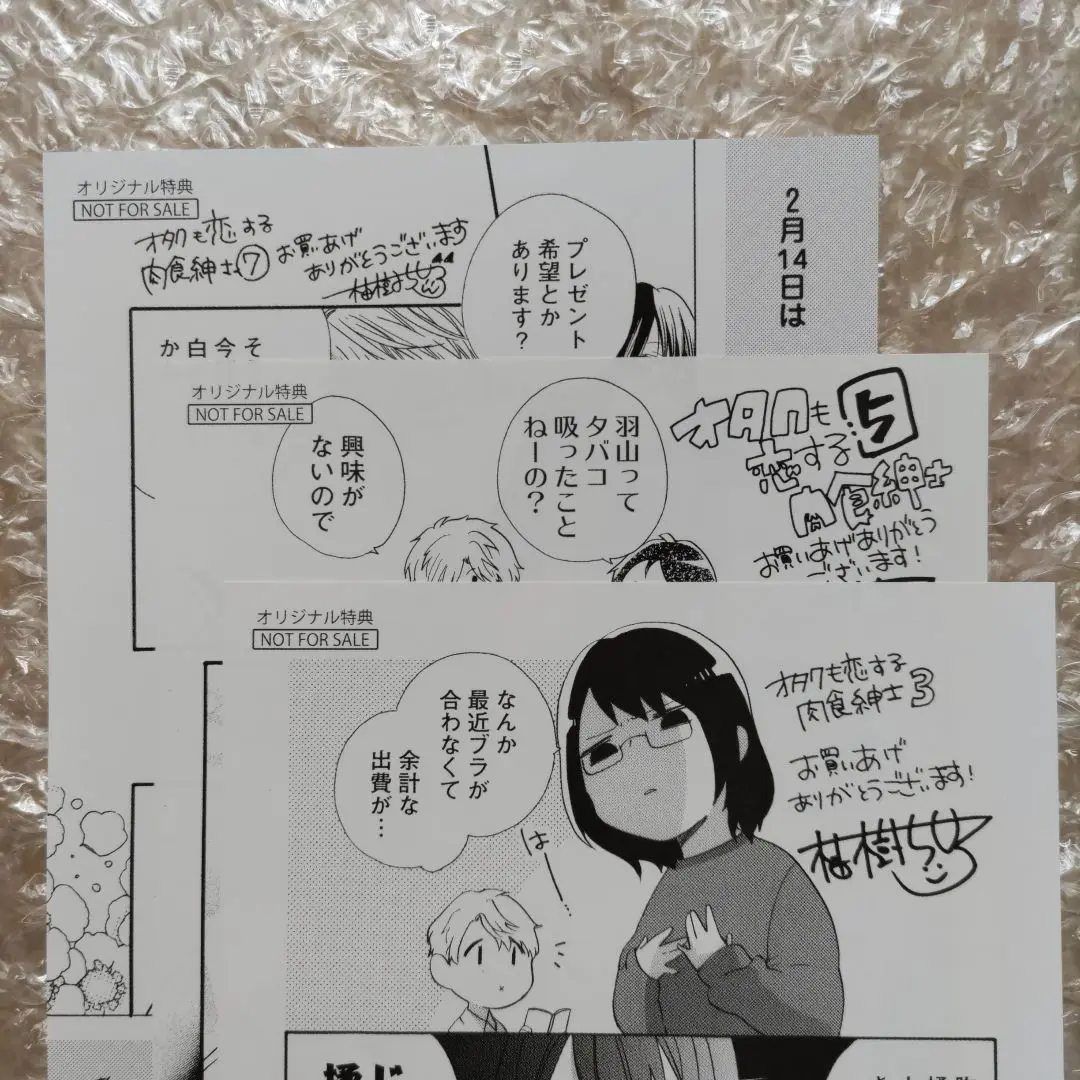 オリジナル特典
NOT FOR SALE
オタクも恋する
肉食紳士⑦
お買いあげ
ありがとうございます
柚樹ちひろ
2月14日は
プレゼント
希望とか
あります?
そ
今
白
か
オリジナル特典
NOT FOR SALE
オタクも
恋する
肉食紳士
5
お買いあげありがとう
ございます!
羽山って
タバコ
吸ったこと
ねーの?
興味が
ないので
オリジナル特典
NOT FOR SALE
オタクも恋する
肉食紳士3
お買いあげ
ありがとうございます!
柚樹ちひろ
なんか
最近ブラが
合わなくて
余計な
出費が…
は…